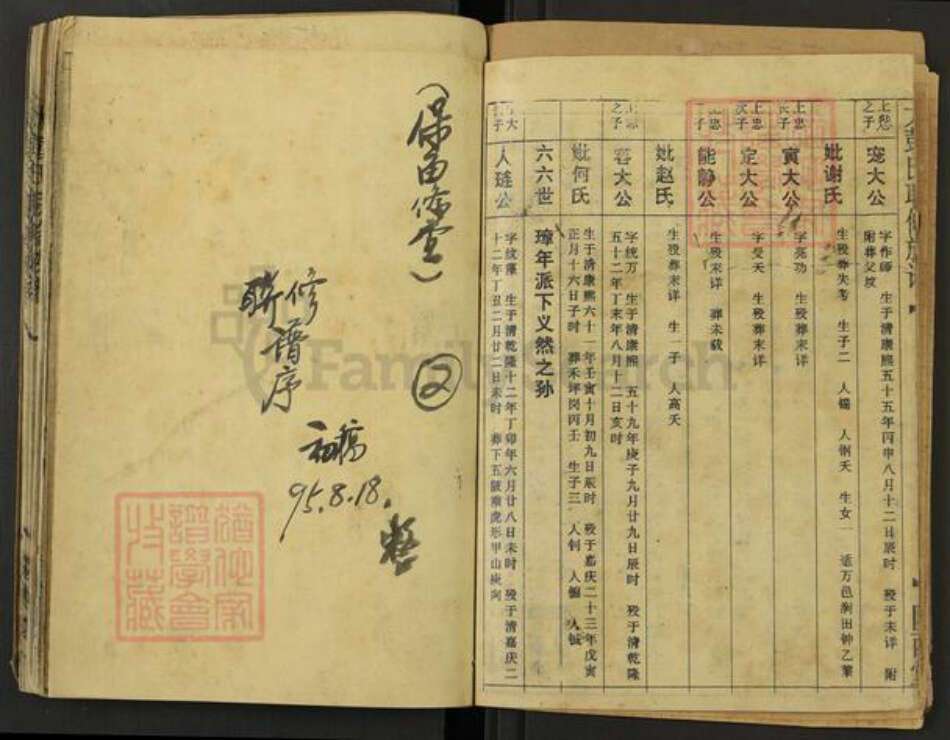 （保留修堂）
②
修
联谱序
初稿
95.8.18.
犹他家
谱学会
收藏
FamilySearch
宠大公
字作师 生于清康熙五十五年丙申八月十二日辰时 殁于未详 附
附葬父坟
妣谢氏
生殁葬失考 生子二 人锡 人钢夭 生女一 适万邑涧田钟乙筆
上忠
次子
寅大公
字亮功 生殁葬未详
上忠
次子
定大公
字受天 生殁葬未详
能静公
生殁未详 葬未载
妣赵氏
生殁葬未详 生一子 人高夭
之子
容大公
字统万 生于清康熙 五十九年庚子九月廿九日辰时 殁于清乾隆
五十二年丁未年八月十二日亥时
妣何氏
生于清康熙六十一年壬寅十月初九日辰时 殁于嘉庆二十三年戊寅
正月十六日子时 葬禾坪岗丙壬 生子三 人钊 人镳 人铖
六六世
璋年派下义然之孙
人琏公
字纹藻 生于清乾隆十二年丁卯年六月廿八日未时 殁于清嘉庆二
十二年丁丑二月廿二日未时 葬下五陂寨虎形甲山庚向